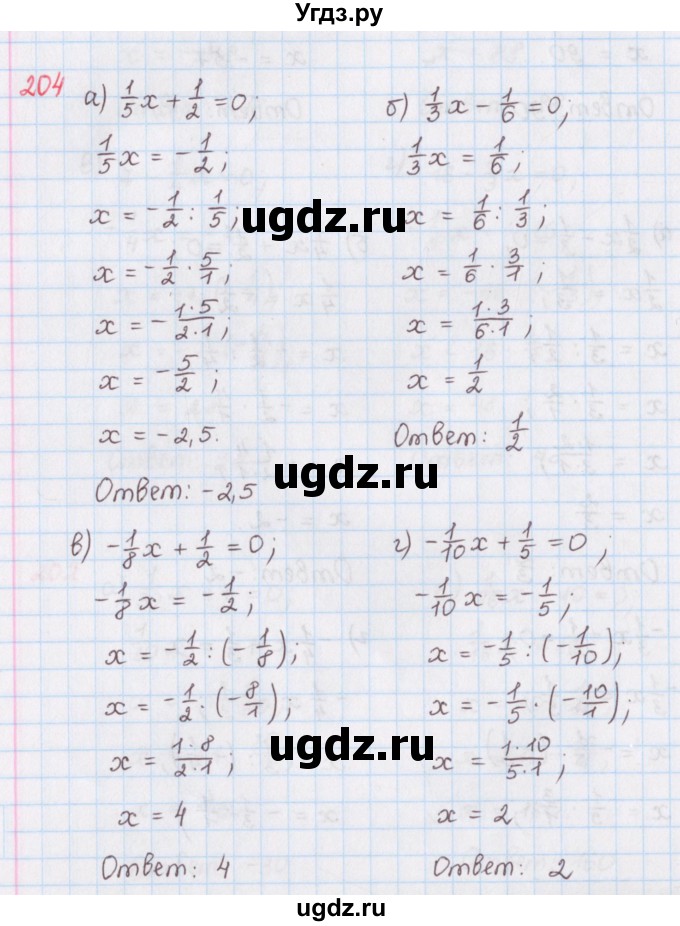 Угдз.ру
204
а) 1/5 x + 1/2 = 0;
1/5 x = - 1/2;
x = - 1/2 : 1/5;
x = - 1/2 · 5/1;
x = - 1·5/2·1;
x = - 5/2;
x = -2,5.
Ответ: -2,5
б) 1/3 x - 1/6 = 0;
1/3 x = 1/6;
x = 1/6 : 1/3;
x = 1/6 · 3/1;
x = 1·3/6·1;
x = 1/2
Ответ: 1/2
ugdz.ru
ugdz.ru
в) - 1/8 x + 1/2 = 0;
- 1/8 x = - 1/2;
x = - 1/2 : (- 1/8);
x = - 1/2 · (- 8/1);
x = 1·8/2·1;
x = 4
Ответ: 4
г) - 1/10 x + 1/5 = 0;
- 1/10 x = - 1/5;
x = - 1/5 : (- 1/10);
x = - 1/5 · (- 10/1);
x = 1·10/5·1;
x = 2
Ответ: 2
ugdz.ru
ugdz.ru